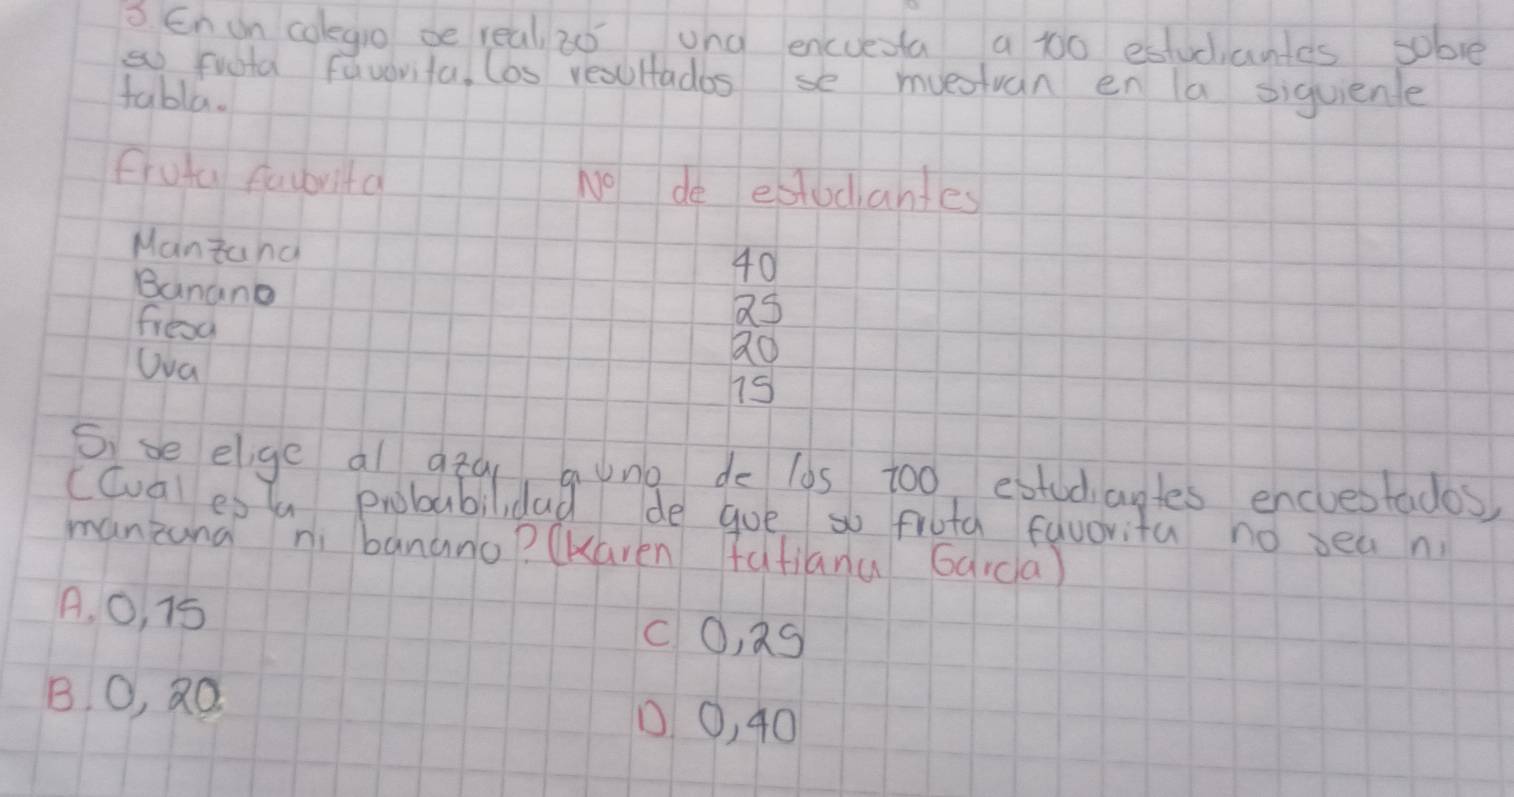 3. En un colegio se realizó una encuesta a 100 estudiantes sobre
su fruta favorita. Los resultados se muestran en la siguiente
tabla.
Fruta favorita No de estudiantes
Manzana 40
Banano 25
fresa 20
Uva 15
Si se elige al azar a uno de los 100 estudiantes encuestados,
¿Cual es la probabilidad de que su fruta favorita no sea ni
manzana ni banano? (Karen tatiana Garcia)
A. 0,15 C 0,25
B. 0,20 D. 0,40